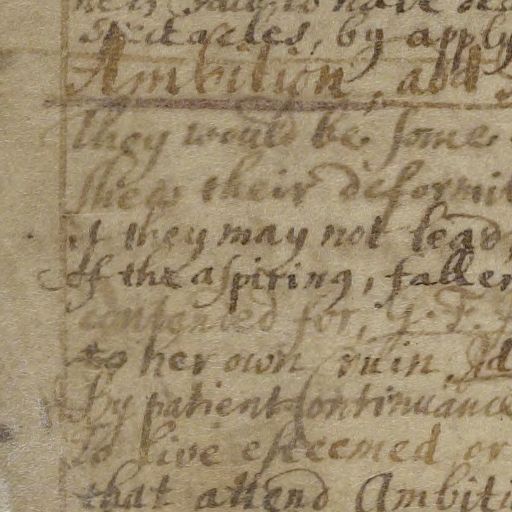 Spectacles, by apply
Ambition, and
They would be some
shew their deformit
if they may not lead,
Of the aspiring, fallen
contented for, G. F.
to her own ruin. Id
By patient Continuance
To live esteemed or
that attend Ambiti